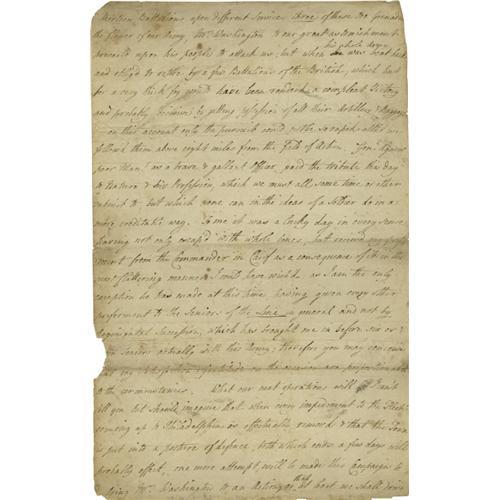 thirteen Battalions upon different Services three of these the Grenad
the flower of our Army. Mr. Washington to our great astonishment
prevail'd upon his people to attack us; but when his whole Army
he was beat back
and oblig'd to retire by a few Battalions of the British, which but
for a very thick fog would have been rendered a compleat Victory
and probably decisive by putting us in possession of all their Artillery & Baggage
on this account only the pursuit could not be so rapid altho' we
follow'd them above eight miles from the Field of Action. Genl. Agnew
poor Man! as a brave & gallant Officer paid the tribute that day
to Nature & his Profession, which we must all some time or other
submit to, but which none can in the ideas of a Soldier do in a
more creditable way. To me it was a lucky day in every sense
having not only escap'd with whole bones, but receiv'd my
ment from the Commander in Chief as a consequence of it in the
most flattering manner I could have wish'd as I am the only
exception he has made at this time having given every other
preferment to the Seniors of the Line in general and not by
Regimental Succession, which has brought me in before six or
Seniors actually with this Army; therefore you may conceive
that my
to the circumstances. What our next operations will be I can't
tell you but should imagine that when every impediment to the Fleet
coming up to Philadelphia is effectually remov'd & that the Town
is put into a posture of defence, both which ends a few days will
probably effect, one more attempt will be made this Campaign to
bring Mr. Washington to an Action, or that at best we shall